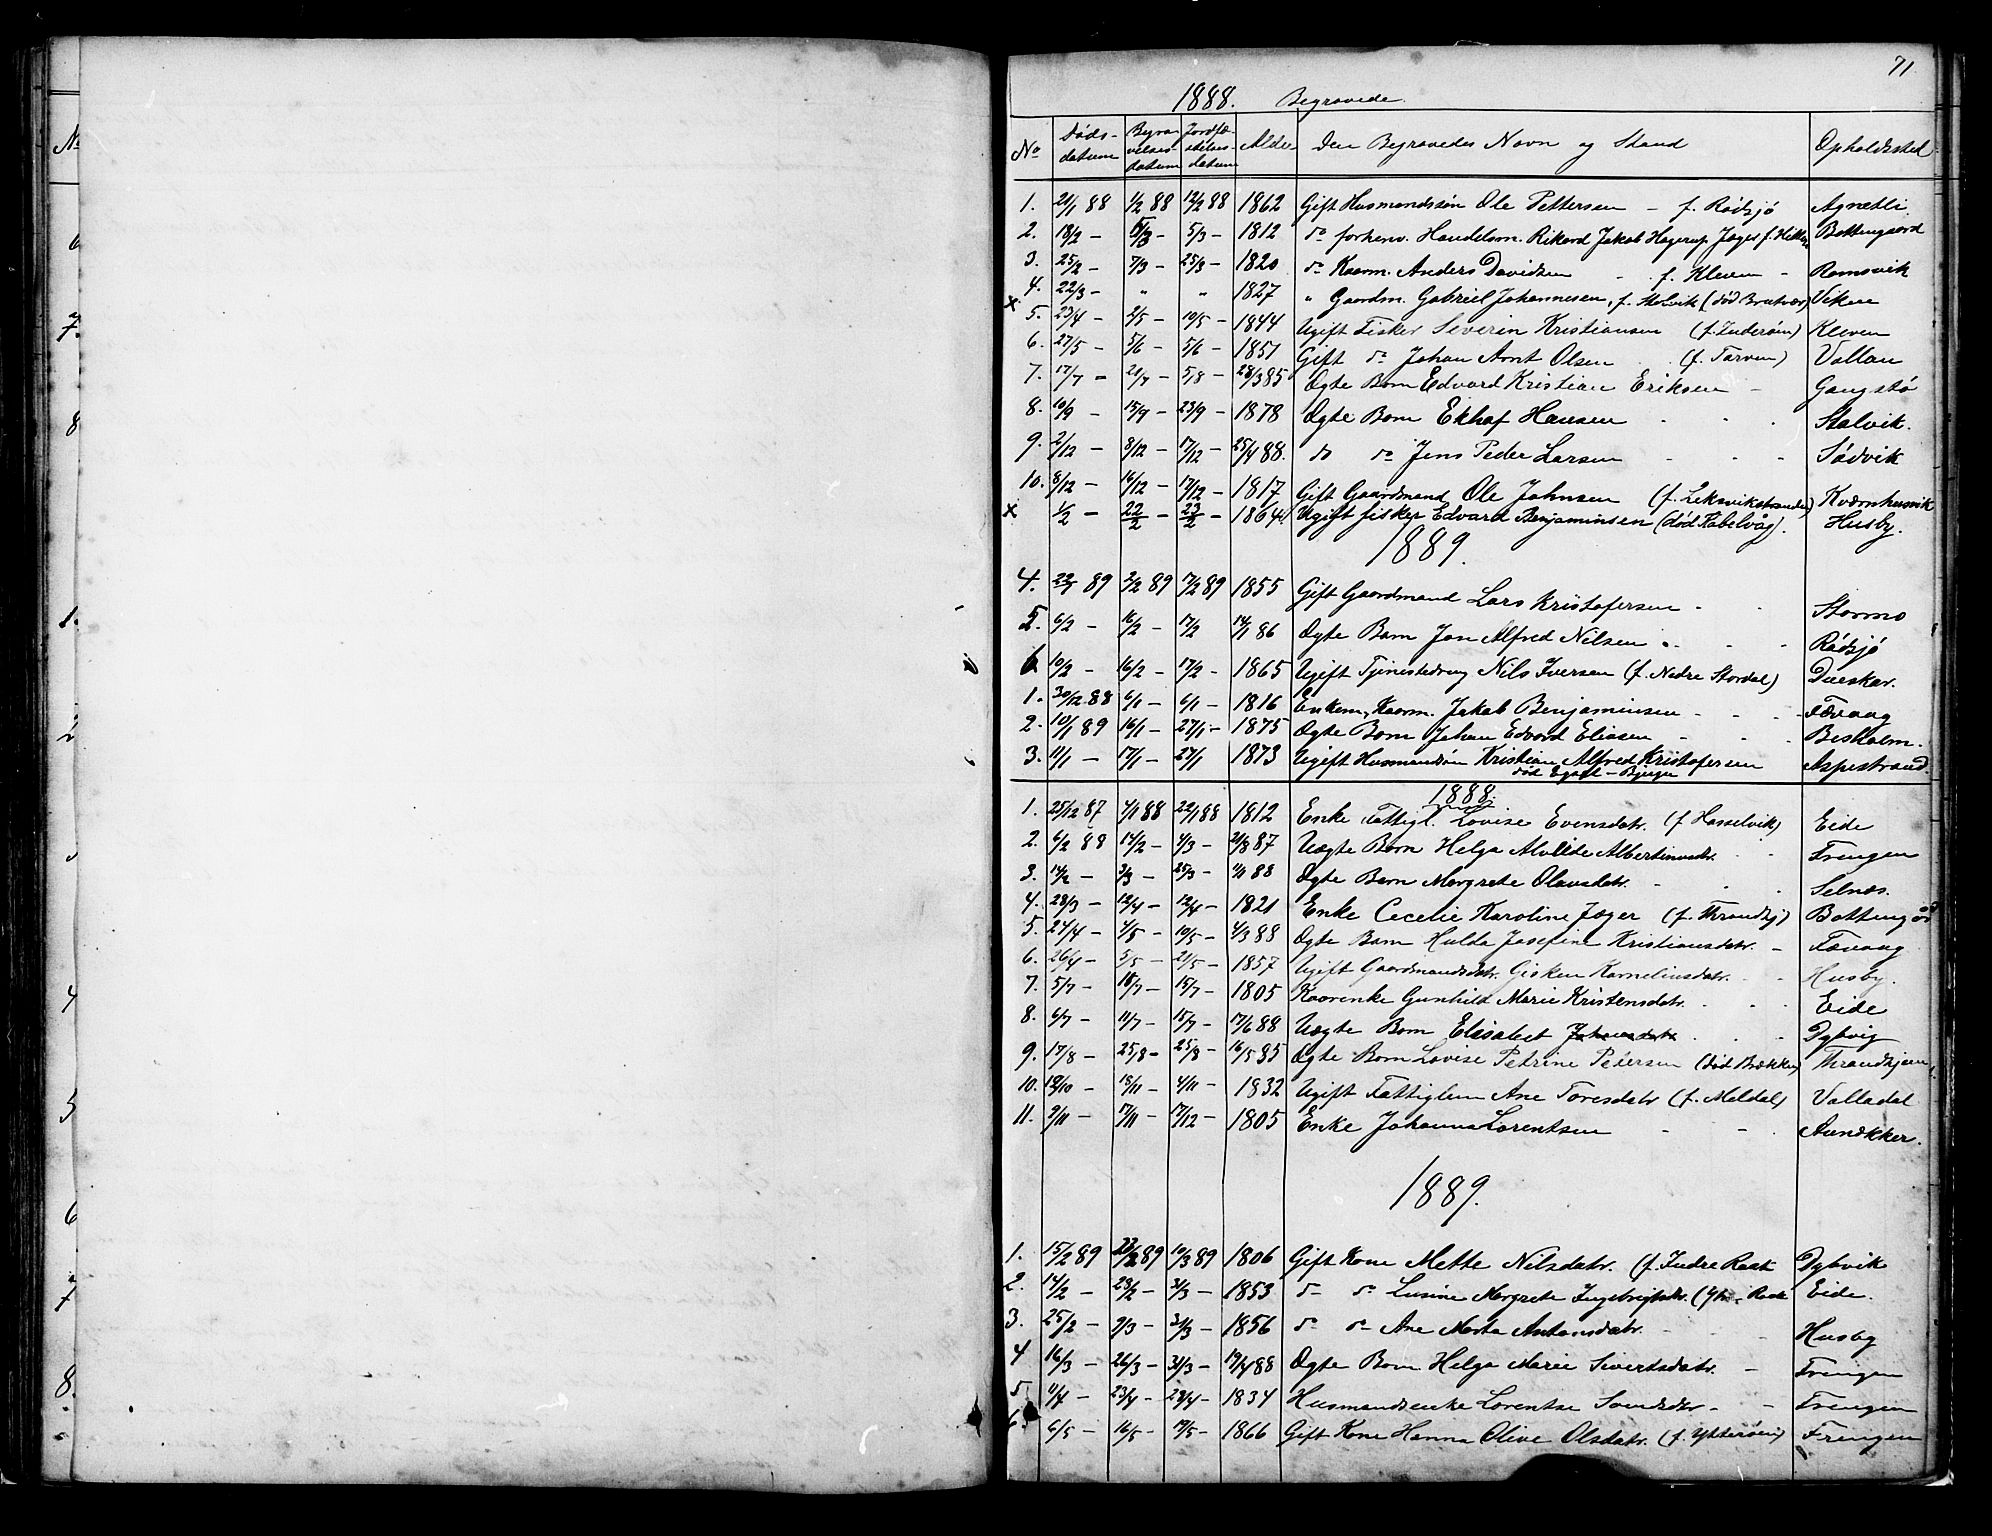 71
1888. Begravede.
No Døds-datum Begravelses-datum Jordfæstelses-datum Alder Den Begravedes Navn og Stand Opholdssted
1. 21/1 88 1/2 88 12/2 88 1862 Gift Husmandssøn Ole Pettersen - f. Rødsjø Agnetli
2. 18/2 - 5/3 - 5/3 - 1812 do forhenv. Handelsm. Rikard Jakob Hagerup Jæger f. Hitteren Bottengaard
3. 25/2 - 7/3 - 25/3 - 1820 do Kaarm. Anders Davidsen - f. Kleven - Ramsvik
x 4. 22/3 - " " 1827 " Gaardm. Gabriel Johannesen, f. Stalvik (død Bratvær) Viken
5. 23/4 - 2/5 - 10/5 - 1844 Ugift Fisker Severin Kristiansen (f. Inderøen) Kleven
6. 27/5 - 5/6 - 5/6 - 1851 Gift do Johan Arnt Olsen (f. Tarven) Vallan
7. 17/7 - 21/7 - 5/8 - 28/3 85 Ægte Barn Edvard Kristian Eriksen - Gangstø
8. 10/9 - 15/9 - 23/9 - 1878 Ægte Barn Ekhaf Hansen - - - Stalvik.
9. 2/12 - 8/12 - 17/12 - 25/4 88. do do Jens Peder Larsen - - - Sødvik
10. 8/12 - 16/12 - 17/12 - 1817 Gift Gaardmand Ole Johnsen (f. Leksvikstranden) Kværnhusvik
x 1/2 - 22/2 - 23/2 - 1864 Ugift fisker Edvard Benjaminsen (død Kabelvåg). Husby.
1889.
4. 22/1 89 2/2 89 17/2 89 1855 Gift Gaardmand Lars Kristofersen - - Stormo
5. 6/2 - 16/2 - 17/2 14/1 86 Ægte Barn Jon Alfred Nilsen - - - Rødsjø
6 10/2 - 16/2 - 17/2 - 1865 Ugift Tjenestedreng Nils Iversen (f. Nedre Stordal) Dueskar.
1. 30/12 88 6/1 - 6/1 - 1816 Enkem., Kaarm. Jakob Benjaminsen - - - Fævaag
2. 10/1 89 16/1 - 27/1 - 1875 Ægte Barn Johan Edvard Eliasen - - - Beskolm.
3. 11/1 - 17/1 - 27/1 1873 Ugift Husmandssøn Kristian Alfred Kristofersen Aspestrand.
død - Bjugn
1888.
1. 25/12 87 4/1 88 22/1 88 1812 Enke Fattigl. Lovise Evensdatr. (f. Hasselvik) Eide
2. 6/2 88 14/2 - 4/3 - 21/8 87 Uægte Barn Helga Alvilde Albertinusdr. - - Frengen
3. 14/2 - 3/3 - 25/3 - 1/1 88 Ægte Barn Margrete Olausdatr. - - - Selnæs.
4. 28/3 - 12/4 - 12/4 - 1821 Enke Cecelie Karoline Jæger (f. Throndhj) Bottengård
5. 27/4 - 4/5 - 10/5 - 4/3 88 Ægte Barn Hulda Josefine Kristiansdatr. - Fævaag
6. 26/4 - 5/5 - 21/5 - 1857 Ugift Gaardmandsdatr. Gisken Korneliusdatr. - - Husby.
7. 5/7 - 10/7 - 15/7 - 1805 Kaarenke Gunhild Marie Kristensdatr. - - - Eide
8. 6/7 - 11/7 - 15/7 - 17/6 88 Uægte Barn Elisabet Johansdatr. - - - Dybvig
9. 17/8 - 25/8 - 25/8 - 16/5 85 Ægte Barn Lovise Petrine Petersen (død Brækken) Thrandhjem
10. 12/10 - 18/11 - 4/11 - 1832 Ugift Fattiglem Ane Toresdatr (f. Meldal) Valladal
11. 9/11 - 17/11 - 17/12 - 1805 Enke Johanna Lorentsen - - - Aunækker.
1889.
1. 15/2 89 23/2 89 10/3 89 1806 Gift Kone Mette Nilsdatr. (f. Indre Raak Dybvik
2. 14/2 - 23/2 - 31/3 - 1853 do do Lusine Margrete Ingebrigtsdr. Eide.
3. 25/2 - 9/3 - 31/3 - 1856 do do Ane Marta Antonsdatr. - - Husby
4 16/3 - 26/3 - 31/3 - 19/4 88 Ægte Barn Helga Marie Sivertsdatr. - Frengen
5. 11/4 - 23/4 - 28/4 - 1834 Husmandsenke Lorentse - - Frengen
6. 6/5 - 16/5 - 17/5 - 1866 Gift Kone Hanna Olive Olsdatr. (f. Ytterøen) Frengen
No
6
7.
8
1.
2
4
5
6
7
8.